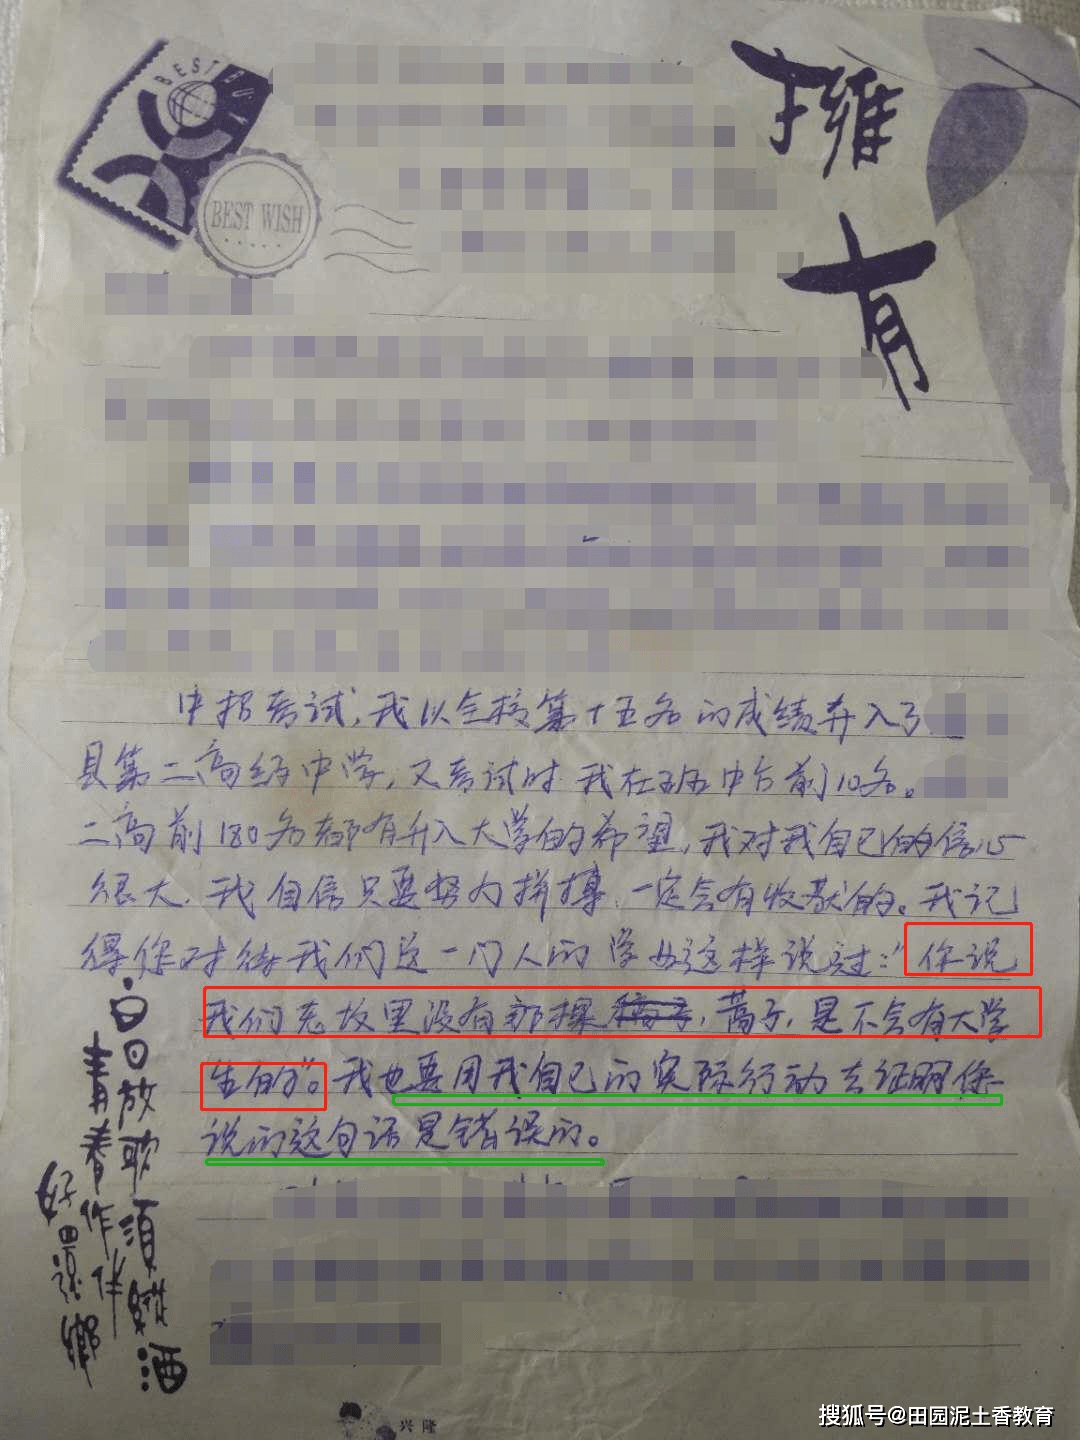 BEST
BEST WISH
擁有
中招考试，我以全校第十五名的成绩升入了
县第二高级中学，又考试时我在班中占前10名。
二高前180名都有升入大学的希望，我对我自己的信心
很大，我自信只要努力拼搏，一定会有收获的。我记
得你对待我们这一门人的学业这样说过：“你说
我们老故里没有那棵，蒿子，是不会有大学
生的”。我也要用我自己的实际行动去证明你
说的这句话是错误的。
白日放歌须纵酒
青春作伴
好還鄉
兴隆
搜狐号@田园泥土香教育